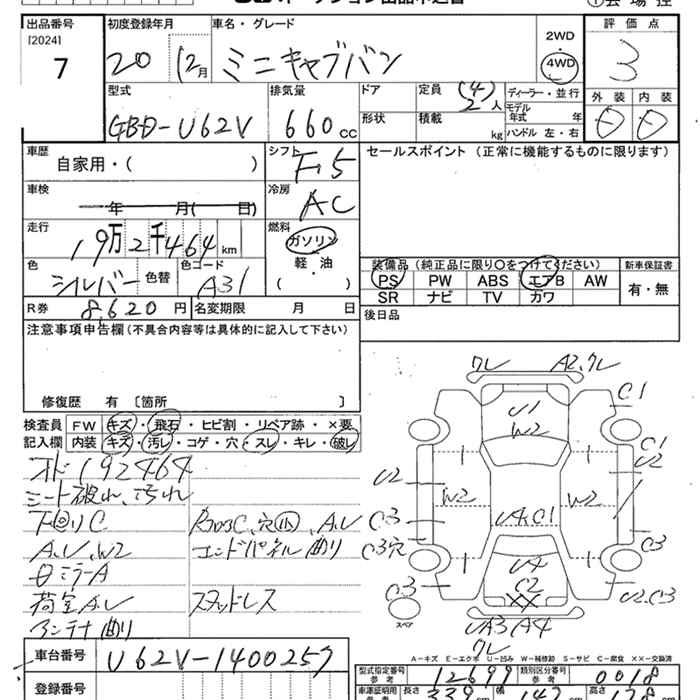 出品番号 初度登録年月 車名・グレード 評価点
[2024] 7 20 12月 ミニキャブバン 2WD・4WD 3
外装 内装
型式 排気量 ドア 定員 (4) 2人 ディーラー・並行
GBD-U62V 660cc 形状 積載 kg モデル年式 年
ハンドル 左・右
車歴 シフト F5 セールスポイント (正常に機能するものに限ります)
自家用・( )
車検 年 月( 日) 冷房 AC
走行 19万2千464km 燃料 ガソリン
軽・油
( )
色 シルバー 色替 色コード A31
装備品 (純正品に限り○をつけてください) 新車保証書
PS PW ABS エアB AW 有・無
SR ナビ TV カワ
R券 8,620円 名変期限 月 日 後日品
注意事項申告欄 (不具合内容等は具体的に記入して下さい)
修復歴 有 〔箇所 〕
検査員 FW キズ・飛石・ヒビ割・リペア跡・×要
記入欄 内装 キズ・汚レ・コゲ・穴・スレ・キレ・破レ
オド192464
シート破れ、汚れ
下回りC
A.U.W2
荷室A.U
アンテナ曲り
エンドパネル曲り
スタッドレス
クレ A2.クレ
C1
U1
W2
C1
U2
U2
W2
W2
C3
C3穴
U4.C1
C3
U4
C2
XX
C3
スペア
U2.C3
UA3 A4
クレ
A-キズ E-エクボ U-凹み W-補修跡 S-サビ C-腐食 XX-交換済
車台番号 U62V-1400257
登録番号
型式指定番号 参考 12699 類別区分番号 参考 0018
車庫証明用 長さ 339cm 幅 147cm 高さ 178